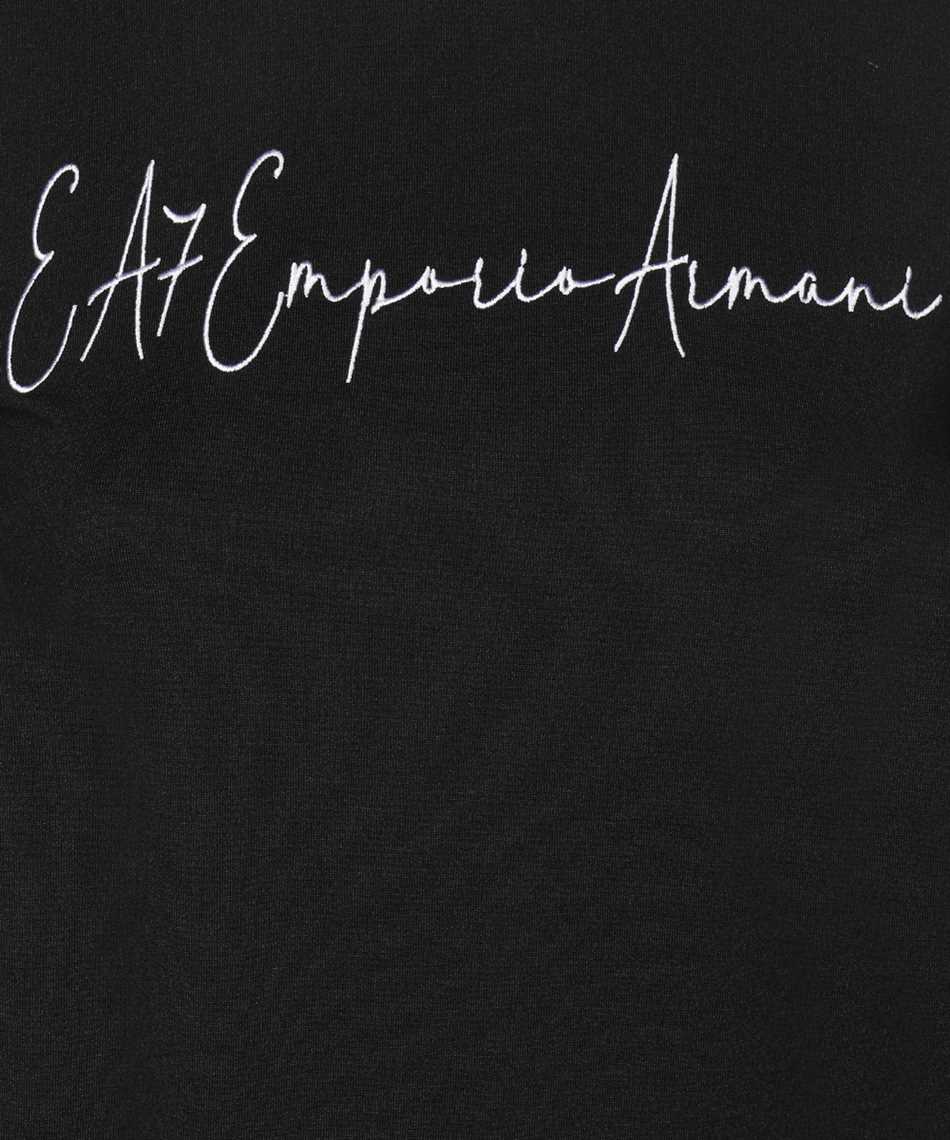 EA7 Emporio Armani